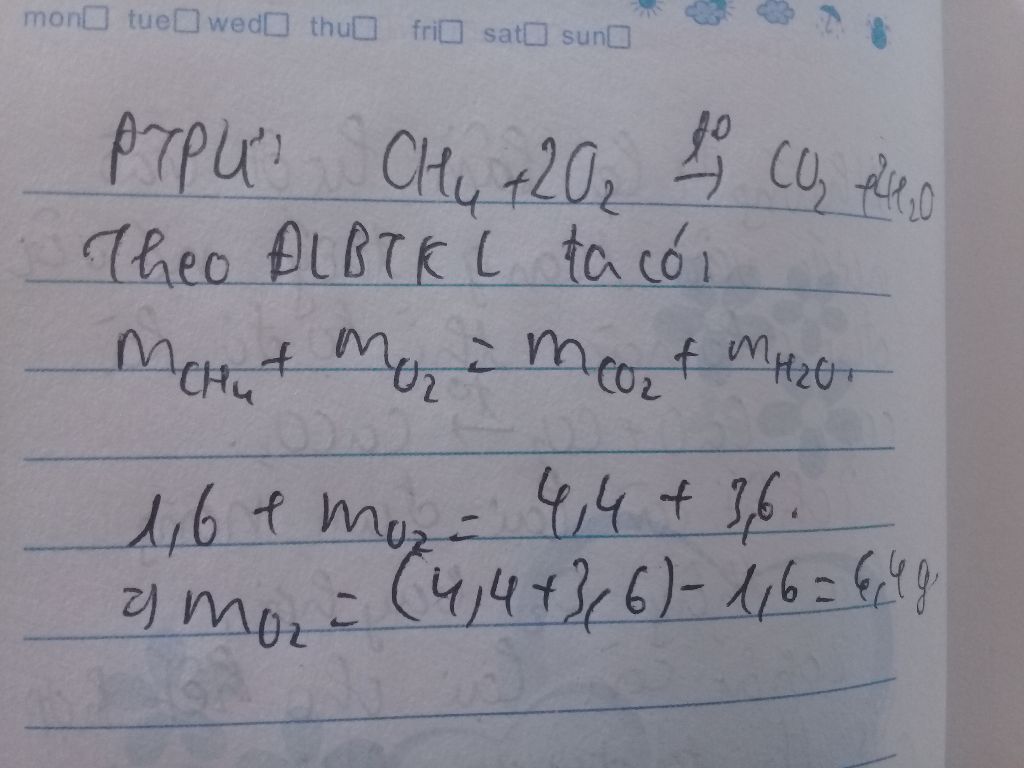 mon☐ tue☐ wed☐ thu☐ fri☐ sat☐ sun☐
PTPƯ: CH₄ + 2O₂ →(t°) CO₂ + 2H₂O
Theo ĐLBTKL ta có:
m_CH₄ + m_O₂ = m_CO₂ + m_H₂O.
1,6 + m_O₂ = 4,4 + 3,6.
=> m_O₂ = (4,4 + 3,6) - 1,6 = 6,4g